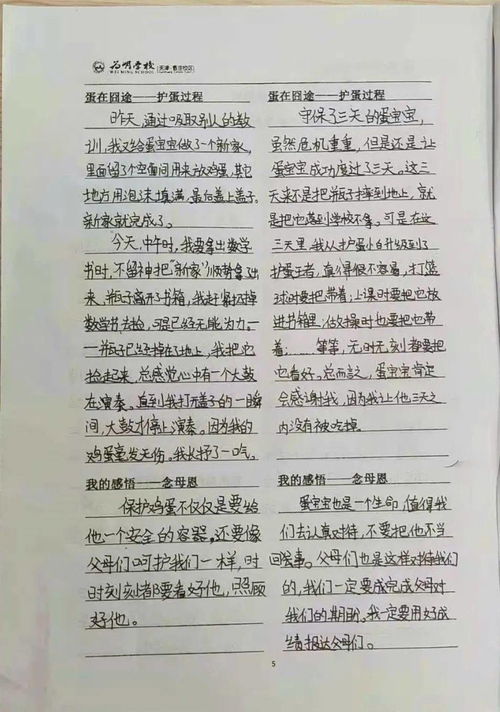 为明学校
WEI MING SCHOOL
天津·
蛋在囧途——护蛋过程
昨天,通过吸取别人的教
训,我又给蛋宝宝做了一个新家,
里面留了个空间用来放鸡蛋,其它
地方用泡沫填满,最后盖上盖子。
新家就完成了。
今天,中午时,我要拿出数学
书时,不留神把"新家"顺势拿了出
来,瓶子离开了书箱,我赶紧扔掉
数学书去捡,可是已经无能为力。
一瓶子已经掉在了地上,我把它
捡起来,总感觉心中有一个大鼓
在演奏。直到我打开盖子的一瞬
间,大鼓才停止了演奏。因为我的
鸡蛋毫发无伤。我长抒了一口气。
我的感悟——念母恩
保护鸡蛋不仅仅是要给
他一个安全的容器,还要像
父母们呵护我们一样,时
时刻刻都要看好他,照顾
好他。
蛋在囧途——护蛋过程
守保了三天的蛋宝宝,
虽然危机重重,但是还是让
蛋宝宝成功度过了三天。这三
天来不是把瓶子摔到地上,就
是把它落到学校不拿。可是在这
三天里,我从护蛋小白升级到了
护蛋王者,真算得很不容易,打篮
球时要把带着;上课时要把它放
进书箱里,做操时也要把它带
着;……等等,无时无刻都要把
它看好。总而言之,蛋宝宝肯定
会感谢我,因为我让他三天之
内没有被吃掉。
我的感悟——念母恩
蛋宝宝也是一个生命,值得我
们去认真对待,不要把他不当
回会事。父母们也是这样对待我们
的,我们一定要成完成父母对
我们的期盼。我一定要用好成
绩报达父母们。
5